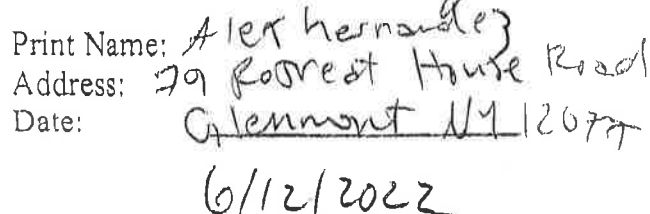 Print Name: Alex hernandez
Address: 79 Rosrest House Road
Date: Glenmont NY 12077
6/12/2022